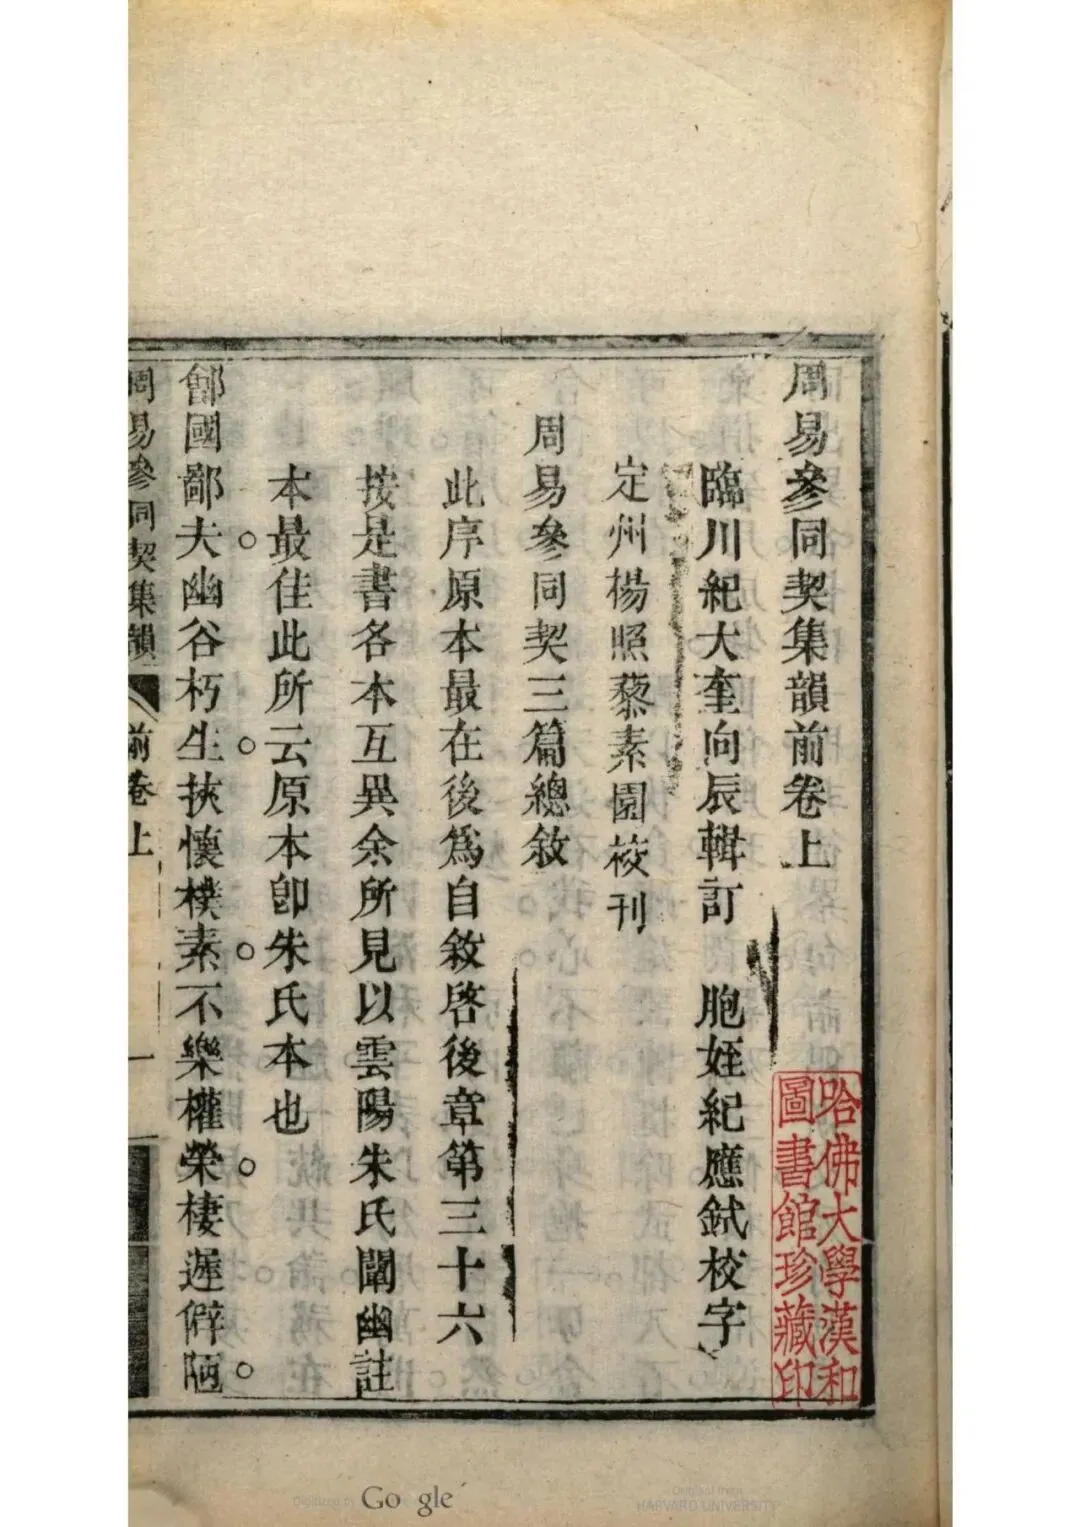 周易參同契集韻前卷上
臨川紀大奎向辰輯訂　胞姪紀應鉽校字
定州楊照藜素園校刊
周易參同契三篇總敘
此序原本最在後爲自敘啓後章第三十六
按是書各本互異余所見以雲陽朱氏闡幽註
本最佳此所云原本卽朱氏本也
鄶國鄙夫。幽谷朽生。挾懷樸素。不樂權榮。棲遲僻陋。
周易參同契集韻
前卷上
一
哈佛大學漢和
圖書館珍藏印
Digitized by Google
Original from
HARVARD UNIVERSITY